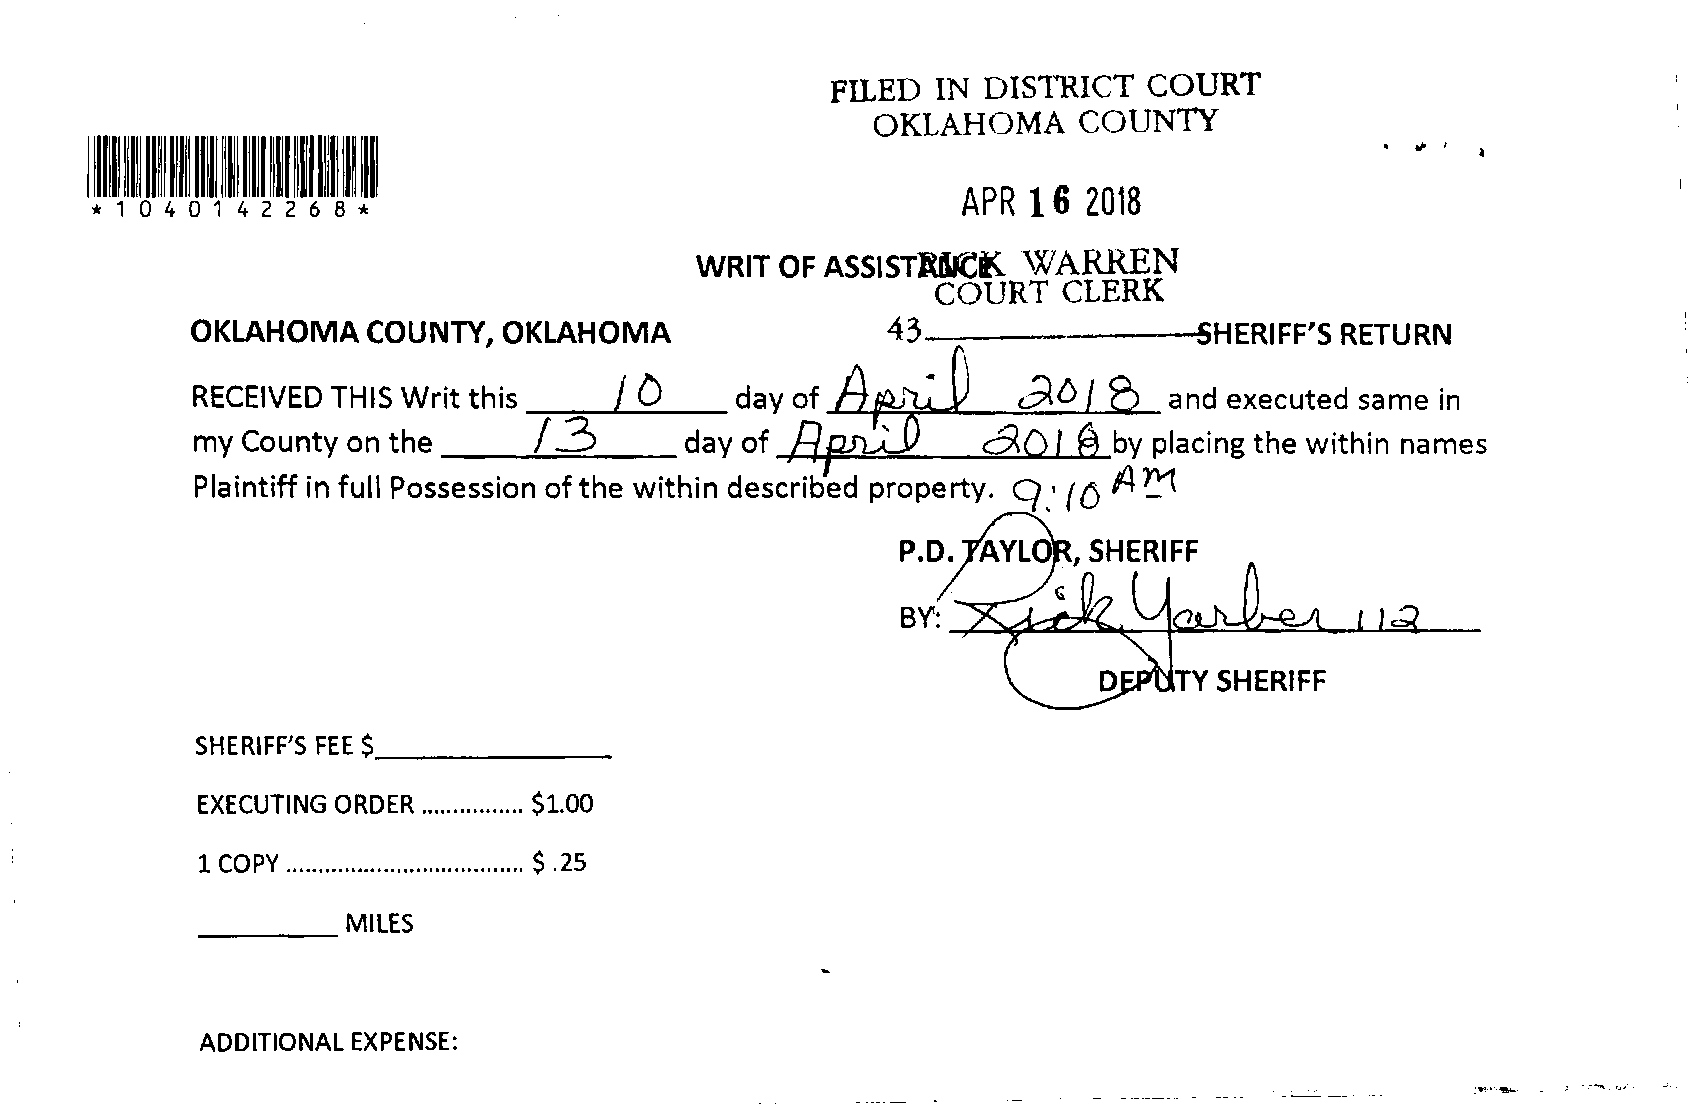 FILED IN DISTRICT COURT
OKLAHOMA COUNTY
*1040142268*
APR 16 2018
WRIT OF ASSISTANCE
RICK WARREN
COURT CLERK
OKLAHOMA COUNTY, OKLAHOMA 43 SHERIFF'S RETURN
RECEIVED THIS Writ this 10 day of April 2018 and executed same in
my County on the 13 day of April 2018 by placing the within names
Plaintiff in full Possession of the within described property. 9:10 AM
P.D. TAYLOR, SHERIFF
BY: Rick Yarber 112
DEPUTY SHERIFF
SHERIFF'S FEE $
EXECUTING ORDER ................ $1.00
1 COPY ...................................... $ .25
MILES
ADDITIONAL EXPENSE: